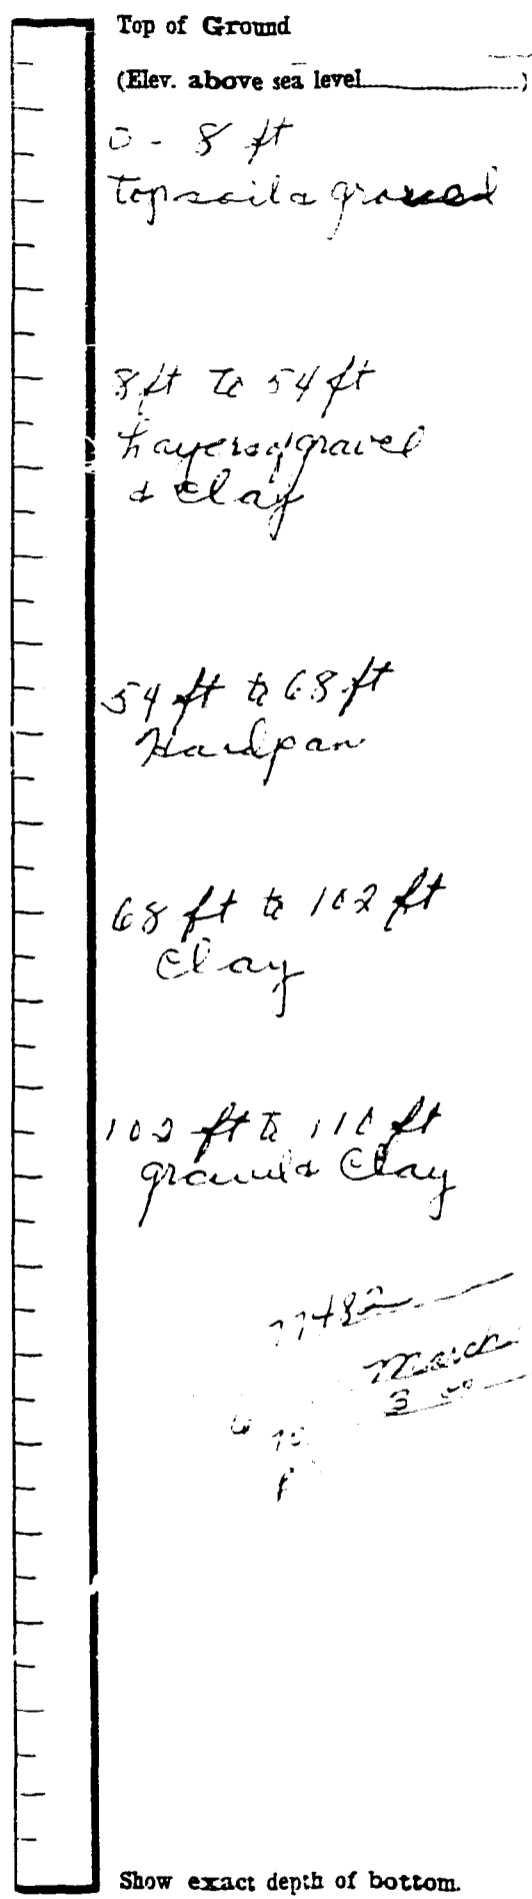 Top of Ground
(Elev. above sea level__________)
0 - 8 ft
Topsoil & gravel
8 ft to 54 ft
Layers of gravel
& clay
54 ft to 68 ft
Hardpan
68 ft to 102 ft
Clay
102 ft to 110 ft
gravel & Clay
March
3
Show exact depth of bottom.